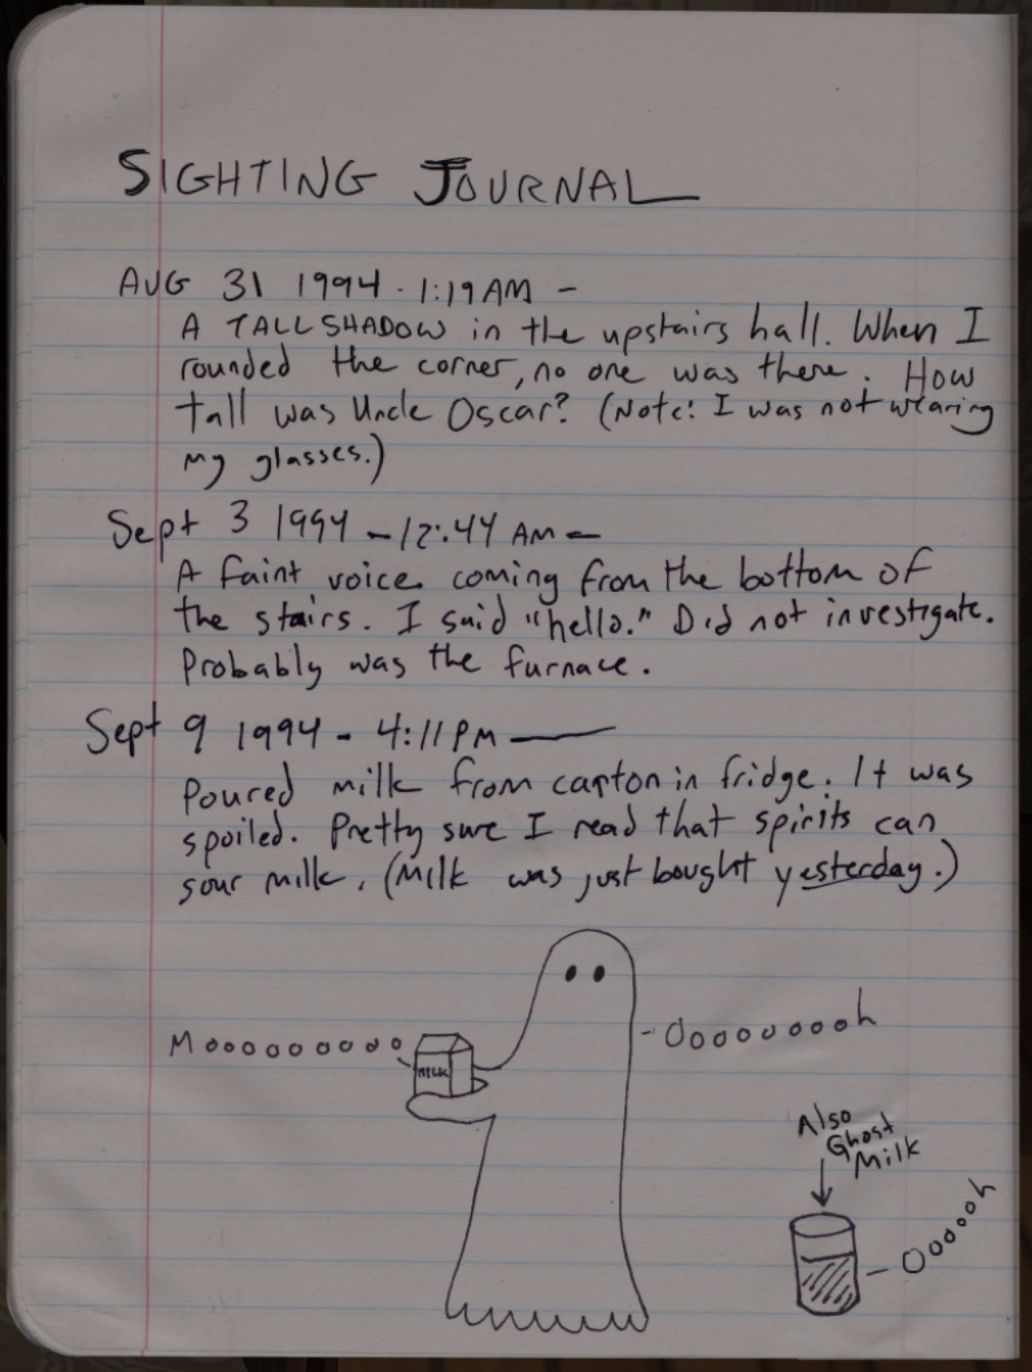 SIGHTING JOURNAL
AUG 31 1994 - 1:19AM -
A TALL SHADOW in the upstairs hall. When I
rounded the corner, no one was there. How
tall was Uncle Oscar? (Note: I was not wearing
my glasses.)
Sept 3 1994 - 12:44 AM -
A faint voice coming from the bottom of
the stairs. I said "hello." Did not investigate.
Probably was the furnace.
Sept 9 1994 - 4:11PM -
Poured milk from carton in fridge. It was
spoiled. Pretty sure I read that spirits can
sour milk. (Milk was just bought yesterday.)
Mooooooooo
MILK
-Oooooooh
Also
Ghost
Milk
- Oooooh